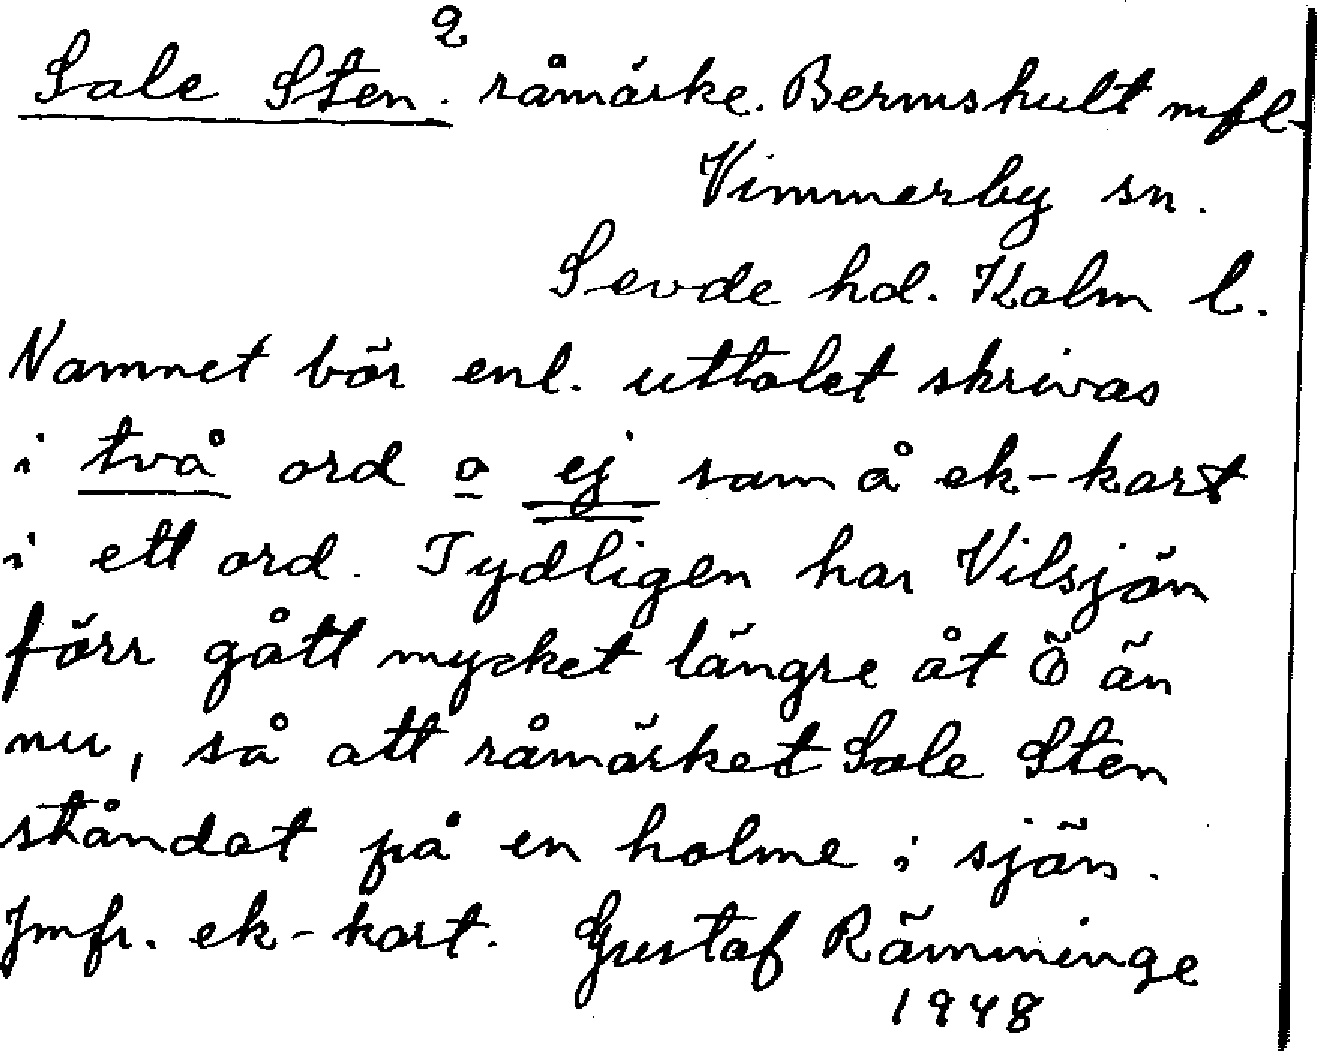 2
Sale Sten. råmärke. Bermshult mfl.
Vimmerby sn.
Sevde hd. Kalm l.
Namnet bör enl. uttalet skrivas
i två ord o ej som å ek-kart
i ett ord. Tydligen har Vilsjön
förr gått mycket längre åt Ö än
nu, så att råmärket Sale Sten
ståndat på en holme i sjön.
Jmfr. ek-kart. Gustaf Rämminge
1948